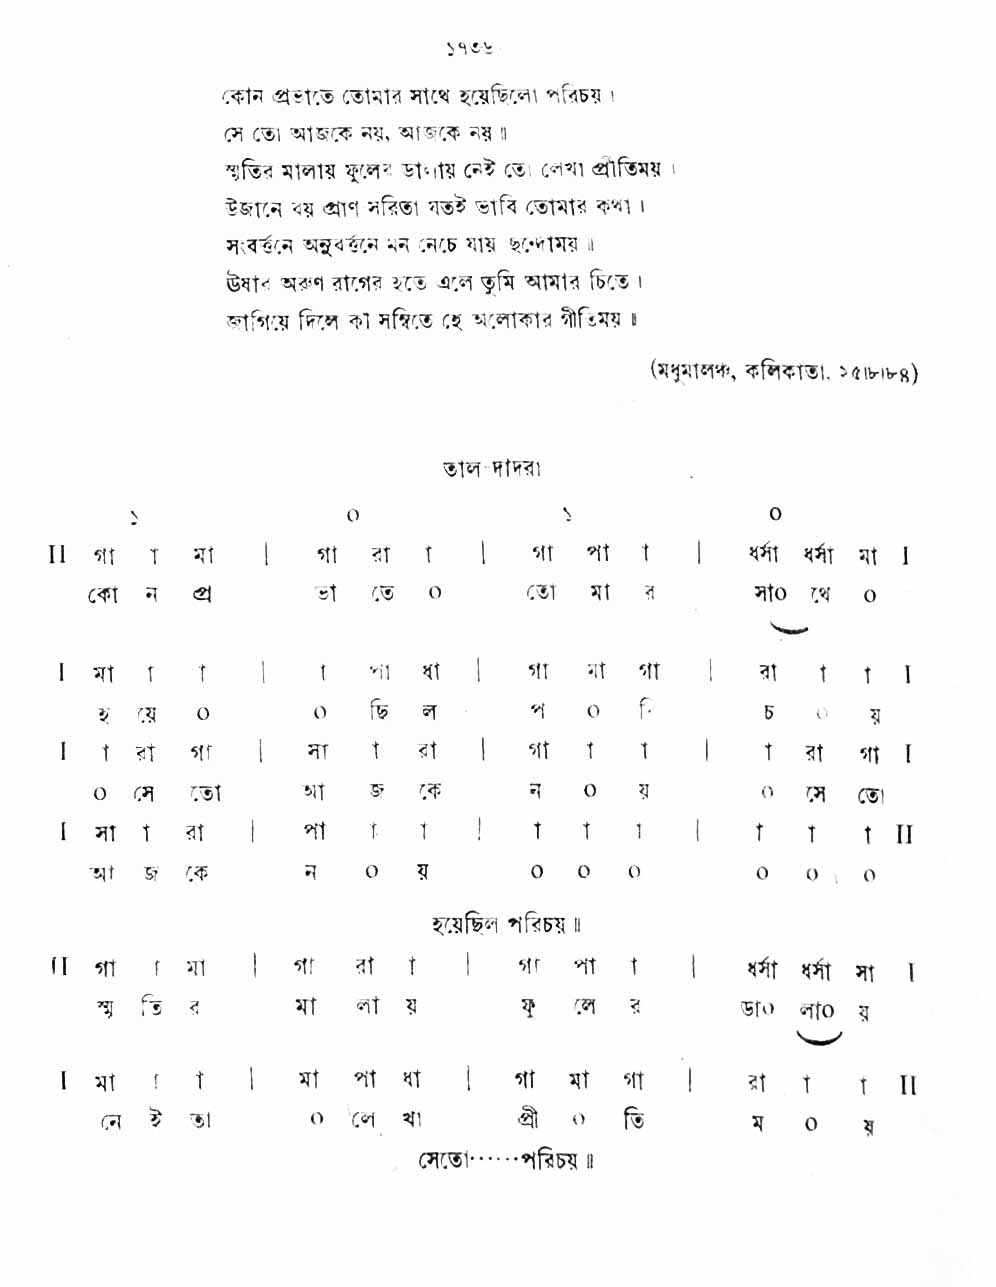 ১৭৩৬
কোন প্রভাতে তোমার সাথে হয়েছিলো পরিচয় ।
সে তো আজকে নয়, আজকে নয় ॥
স্মৃতির মালায় ফুলের ডালায় নেই তো লেখা প্রীতিময় ।
উজানে বয় প্রাণ সরিতা যতই ভাবি তোমার কথা ।
সংবর্ত্তনে অনুবর্ত্তনে মন নেচে যায় ছন্দোময় ॥
ঊষার অরুণ রাগের হতে এলে তুমি আমার চিতে ।
জাগিয়ে দিলে কী সম্বিতে হে অলোকার গীতিময় ॥
(মধুমালঞ্চ, কলিকাতা, ১৫।৮।৮৪)
তাল-দাদরা
১ ০ ১ ০
II গা া মা | গা রা া | গা পা া | ধর্সা ধর্সা মা I
কো ন প্র ভা তে ০ তো মা র সা০ থে ০
I মা া া | া পা ধা | গা মা গা | রা া া I
হ য়ে ০ ০ ছি ল প ০ রি চ ০ য়
I া রা গা | সা া রা | গা া া | া রা গা I
০ সে তো আ জ কে ন ০ য় ০ সে তো
I সা া রা | পা া া | া া া | া া া II
আ জ কে ন ০ য় ০ ০ ০ ০ ০ ০
হয়েছিল পরিচয় ॥
II গা া মা | গা রা া | গা পা া | ধর্সা ধর্সা সা I
স্মৃ তি র মা লা য় ফু লে র ডা০ লা০ য়
I মা া া | মা পা ধা | গা মা গা | রা া া II
নে ই তা ০ লে খা প্রী ০ তি ম ০ য়
সেতো······পরিচয় ॥